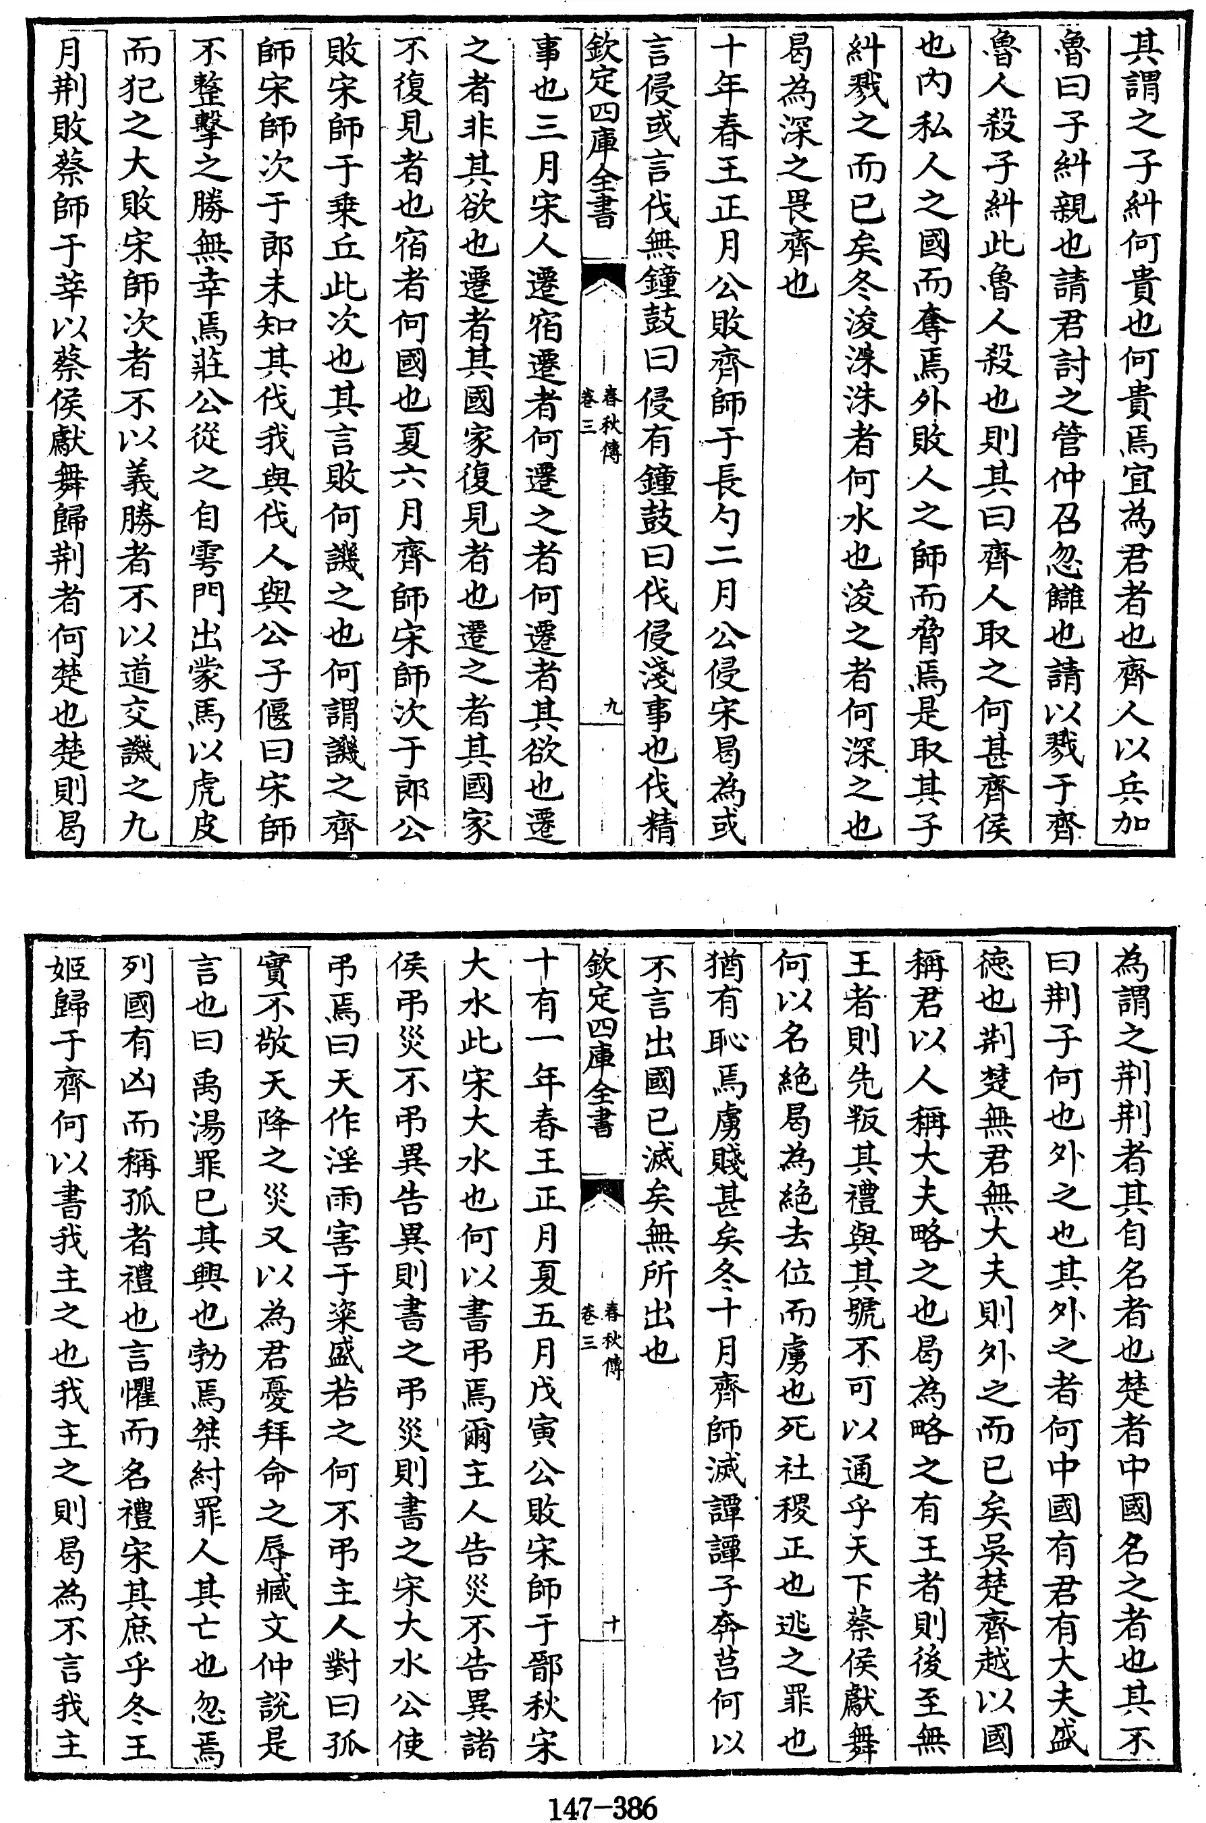 其謂之子糾何貴也何貴焉宜為君者也齊人以兵加
魯曰子糾親也請君討之管仲召忽讎也請以戮于齊
魯人殺子糾此魯人殺也則其曰齊人取之何甚齊侯
也内私人之國而奪焉外敗人之師而脅焉是取其子
糾戮之而已矣冬浚洙洙者何水也浚之者何深之也
曷為深之畏齊也
十年春王正月公敗齊師于長勺二月公侵宋曷為或
言侵或言伐無鐘鼓曰侵有鐘鼓曰伐侵淺事也伐精
欽定四庫全書
春秋傳
卷三
九
事也三月宋人遷宿遷者何遷之者何遷者其欲也遷
之者非其欲也遷者其國家復見者也遷之者其國家
不復見者也宿者何國也夏六月齊師宋師次于郎公
敗宋師于乗丘此次也其言敗何譏之也何謂譏之齊
師宋師次于郎未知其伐我與伐人與公子偃曰宋師
不整擊之勝無幸焉莊公從之自雩門出蒙馬以虎皮
而犯之大敗宋師次者不以義勝者不以道交譏之九
月荆敗蔡師于莘以蔡侯獻舞歸荆者何楚也楚則曷
為謂之荆荆者其自名者也楚者中國名之者也其不
曰荆子何也外之也其外之者何中國有君有大夫盛
徳也荆楚無君無大夫則外之而已矣吳楚齊越以國
稱君以人稱大夫略之也曷為略之有王者則後至無
王者則先叛其禮與其號不可以通乎天下蔡侯獻舞
何以名絶曷為絶去位而虜也死社稷正也逃之罪也
猶有恥焉虜賤甚矣冬十月齊師滅譚譚子奔莒何以
不言出國已滅矣無所出也
欽定四庫全書
春秋傳
卷三
十
十有一年春王正月夏五月戊寅公敗宋師于鄑秋宋
大水此宋大水也何以書弔焉爾主人告災不告異諸
侯弔災不弔異告異則書之弔災則書之宋大水公使
弔焉曰天作淫雨害于粢盛若之何不弔主人對曰孤
實不敬天降之災又以為君憂拜命之辱臧文仲說是
言也曰禹湯罪已其興也勃焉桀紂罪人其亡也忽焉
列國有凶而稱孤者禮也言懼而名禮宋其庶乎冬王
姬歸于齊何以書我主之也我主之則曷為不言我主
147-386